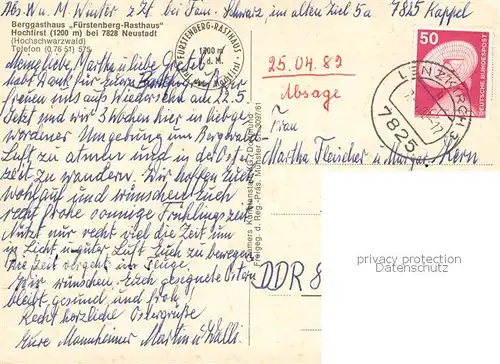 Abs. Wu. M. Winter z. Zt bei Fam. Schwarz im alten Ziel 5a 7815 Kappel
Berggasthaus „Fürstenberg-Rasthaus"
Hochfirst (1200 m) bei 7828 Neustadt
(Hochschwarzwald)
Telefon (0 76 51) 575
FÜRSTENBERG-RASTHAUS
1200 m
ü. d. M.
50
DEUTSCHE BUNDESPOST
LENZKIRCH 3
7825
25.04.89
Absage
Meine liebe Martha u liebe Gretel
habt Dank für Eure
freuen uns aufs Wiedersehn am 22.5
Jetzt sind wir 3 Wochen hier in liebge-
wordner Umgebung um Bergwald
Luft zu atmen und in der Oster-
zeit zu wandern. Wir hoffen Euch
wohlauf und wünschen Euch
recht frohe sonnige Frühlingszeit
Nutzt nur recht viel die Zeit um
in Licht u guter Luft Euch zu bewegen
Die Zeit vergeht im Fluge.
Wir wünschen Euch gesegnete Ostern
bleibt gesund und froh!
Recht herzliche Ostergrüße
Eure Mannheimer Martin u Walli.
Frau
Martha Fleischer u Margot Kern
DDR 8
Cramers Kunstanstalt KG, Dortmund
Freigeg. d. Reg.-Präs. Münster
privacy protection
Datenschutz